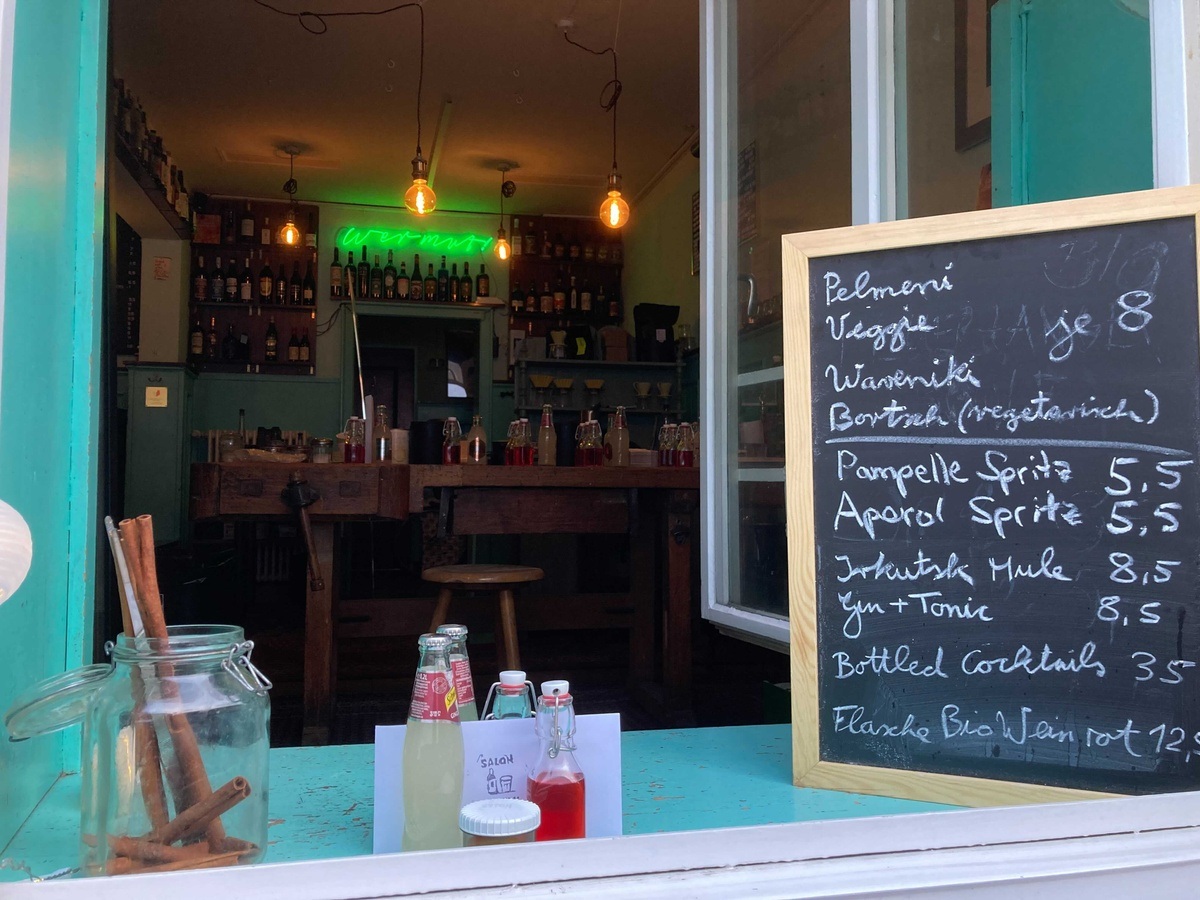 wermut
Pelmeni
Veggie je 8
Wareniki
Bortsch (vegetarisch)
Pampelle Spritz 5,5
Aperol Spritz 5,5
Irkutsk Mule 8,5
Gin + Tonic 8,5
Bottled Cocktails 35
Flasche Bio Wein rot 12,
SALON